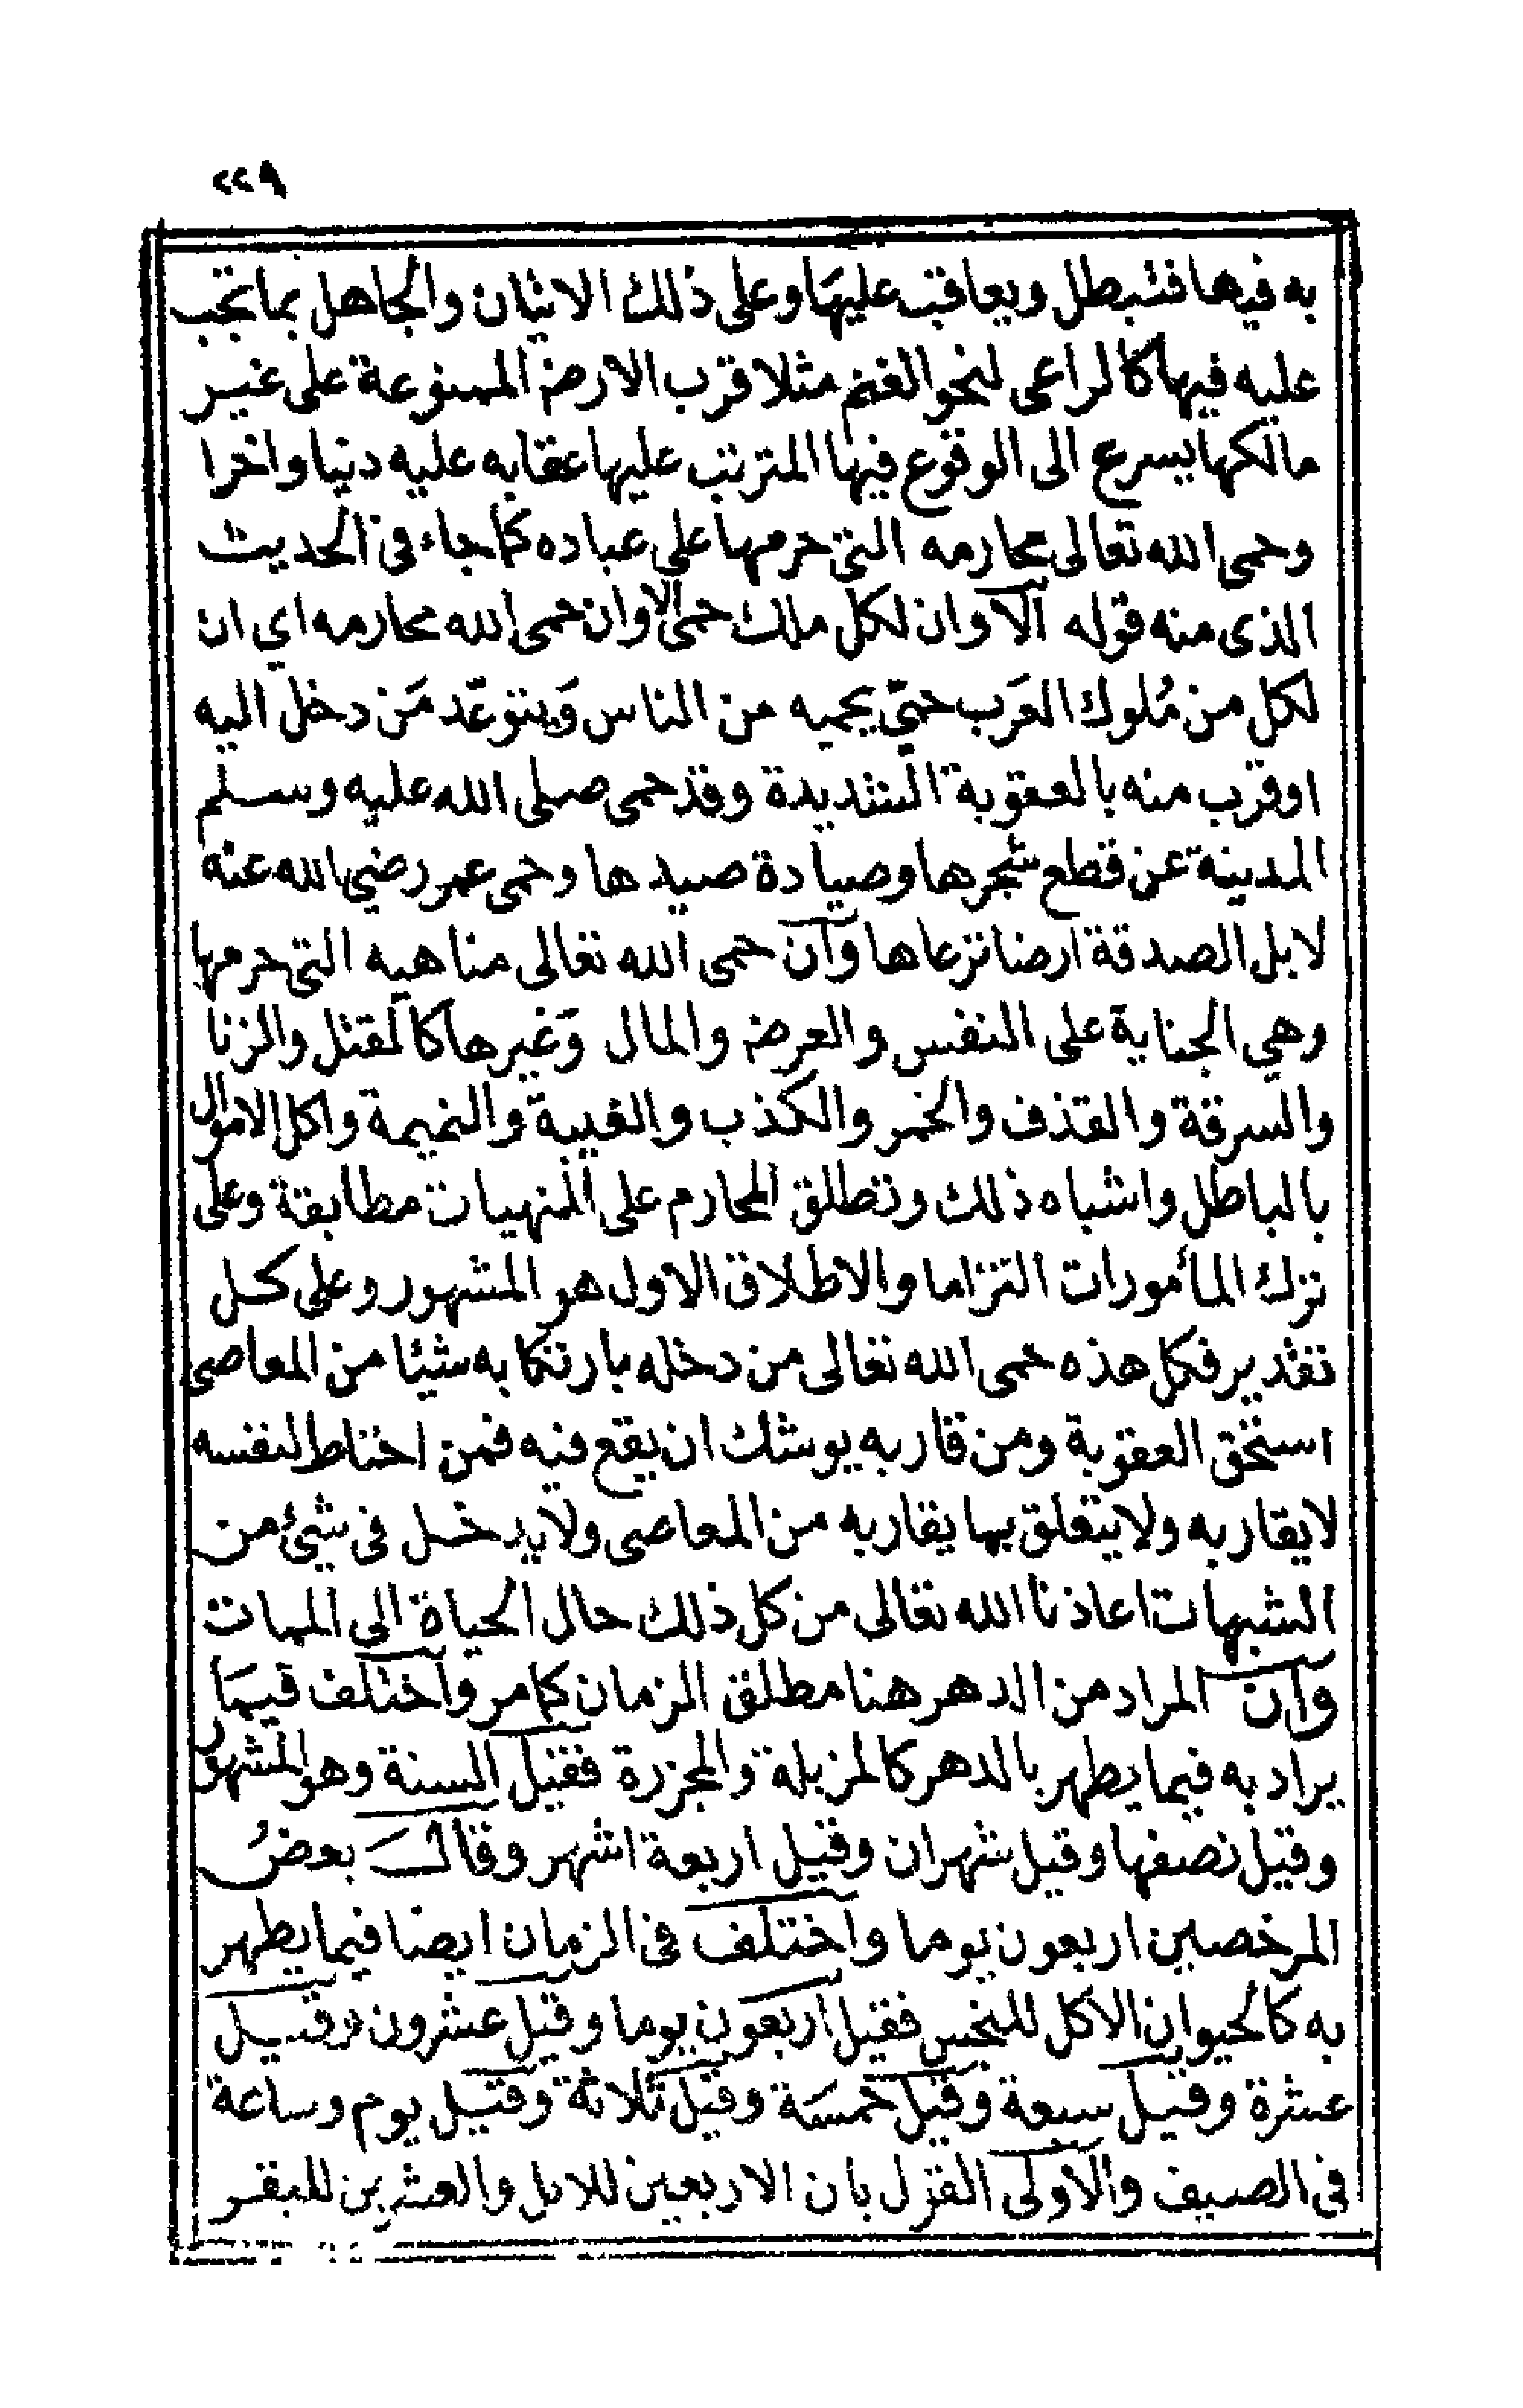 ٢٢٩
به فيها فتبطل ويعاقب عليها وعلى ذلك الاثيان والجاهل بما تجب
عليه فيها كالراعى لنحو الغنم مثلا قرب الارض الممنوعة على غير
مالكها يسرع الى الوقوع فيها المترتب عليها عقابه عليه دنيا واخرا
وحمى الله تعالى محارمه التى حرمها على عباده كما جاء فى الحديث
الذى منه قوله الا وان لكل ملك حمى الا وان حمى الله محارمه اي ان
لكل من مُلوك العَرب حمىّ يحميه من الناس وَيتوعّد مَن دخل اليه
او قرب منه بالعقوبة الشديدة وقد حمى صلى الله عليه وسلم
المدينة عن قطع شجرها وصيادة صيدها وحمى عمر رضي الله عنه
لابل الصدقة ارضا ترعاها وان حمى الله تعالى مناهيه التى حرمها
وهي الجناية على النفس والعرض والمال وَغيرها كالقتل والزنا
والسرقة والقذف والخمر والكذب والغيبة والنميمة واكل الاموال
بالباطل واشباه ذلك وتطلق المحارم على المنهيات مطابقة وعلى
ترك المأمورات التزاما والاطلاق الاول هو المشهور وعلى كل
تقدير فكل هذه حمى الله تعالى من دخله بارتكابه شيئا من المعاصى
استحق العقوبة ومن قاربه يوشك ان يقع فيه فمن احتاط لنفسه
لا يقاربه ولا يتعلق بما يقاربه من المعاصى ولا يدخل فى شئ من
الشبهات اعاذنا الله تعالى من كل ذلك حال الحياة الى الممات
وان المراد من الدهر هنا مطلق الزمان كما مر واختلف فيمَا
يراد به فيما يطهر بالدهر كالمزبلة والمجزرة فقيل السنة وهو المشهور
وقيل نصفها وقيل شهران وقيل اربعة اشهر وقالَ بعضُ
المرخصين اربعون يوما واختلف فى الزمان ايضا فيما يطهر
به كالحيوان الاكل للنجس فقيل اربعون يوما وقيل عشرون وقيل
عشرة وقيل سبعة وقيل خمسَة وقيل ثلاثة وقيل يوم وساعة
فى الصيف والاولى القول بان الاربعين للابل والعشرين للبقر